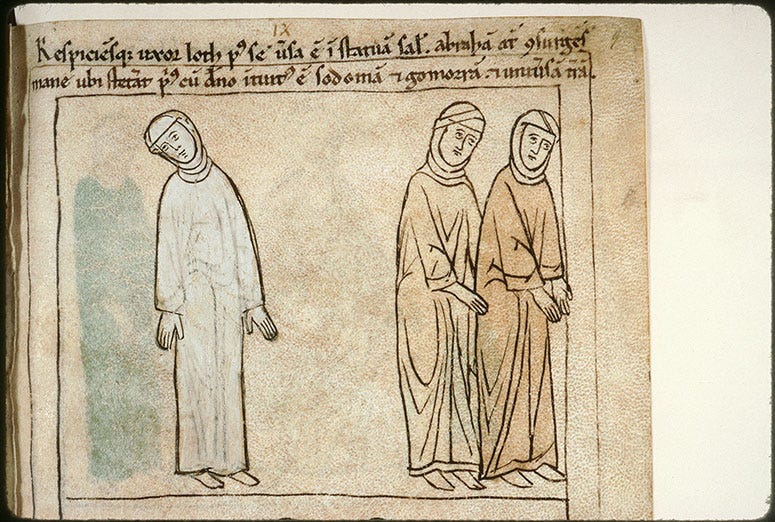 IX
Respiciēsq; uxor loth pꝰ se ūsa ē ī statuā sal̄. abrahā at̄ ꝯsurgēs
mane ubi stetāt pꝰ cū dn̄o ītuitꝰ ē sodomā ⁊ gomorrā. ⁊ uniūsā t̄rā.